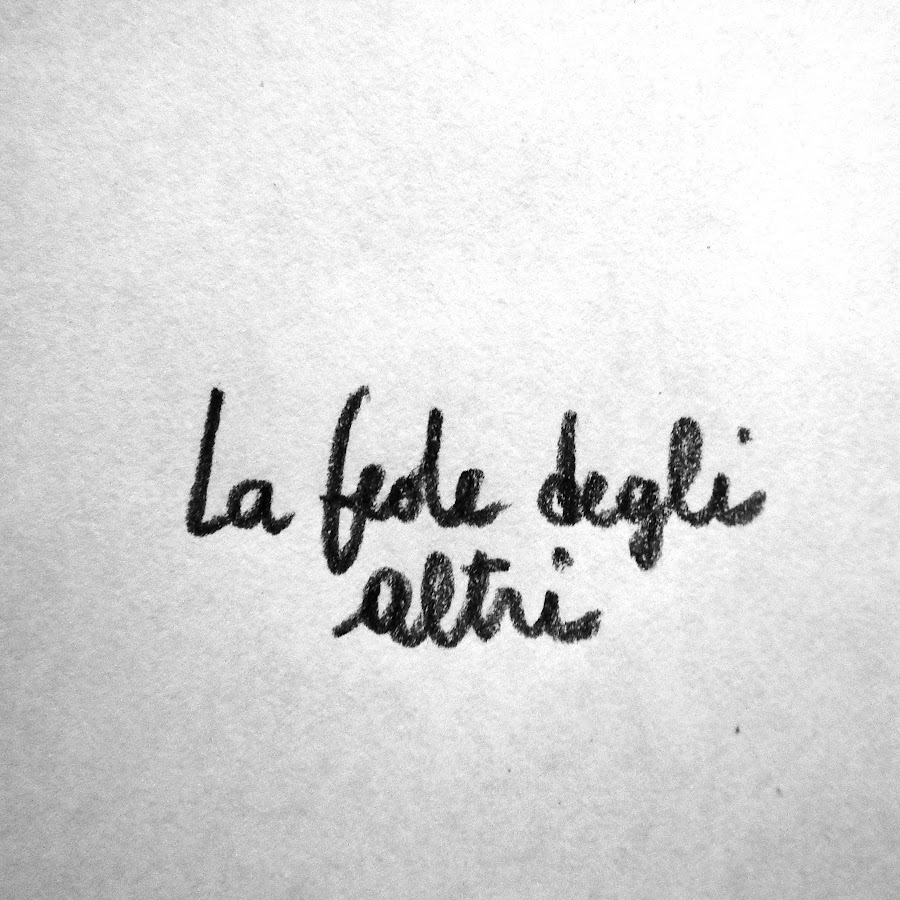 La fede degli
altri